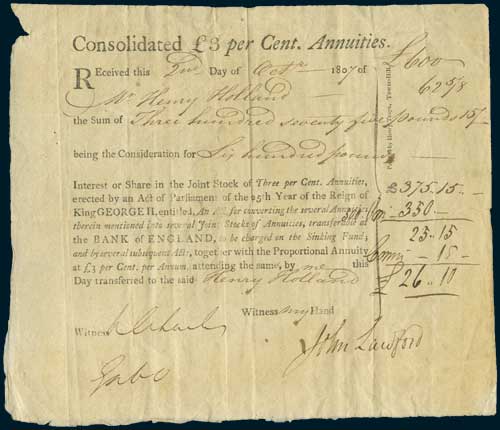 Consolidated £3 per Cent. Annuities.
RECEIVED this 2nd Day of Octr 1807 of
Mr Henry Holland
the Sum of Three hundred seventy five pounds 15/
being the Consideration for Six hundred pounds
Interest or Share in the Joint Stock of Three per Cent. Annuities,
erected by an Act of Parliament of the 25th Year of the Reign of
King GEORGE II, entitled, An Act for converting the several Annuities
therein mentioned into several Joint Stocks of Annuities, transferable at
the BANK of ENGLAND, to be charged on the Sinking Fund;
and by several subsequent Acts, together with the Proportional Annuity
at £3 per Cent. per Annum, attending the same, by me this
Day transferred to the said Henry Holland
Witness my Hand
Witness
John Lawford
£600
62 5/8
£ 375.15
350
25..15
Commn 15
£26..10